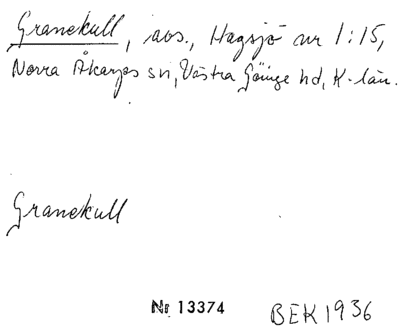 Granekull, avs., Hagsjö nr 1:15,
Norra Åkarps sn, Västra Göinge hd, K-län.
Granekull
Nr 13374 BEK 1936